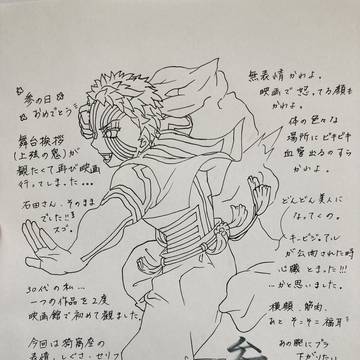 参の日
おめでとう
舞台挨拶
(上弦の鬼)が
観たくて再び映画
行ってしまった…
石田さん、そのまま
でした!!
スゴ。
30代の私…
一つの作品を2度
映画館で初めて観ました。
今回は猗窩座の
表情、しぐさ、セリフ
無表情かれよ。
映画で怒ってる顔も
かれよ。
体の色々な
場所にビキビキ
血管出るのすら
かれよ。
どんどん美人に
なってくの。
キービジュアル
が公開された時
心臓とまった!!!
…かと思いました。
横顔、筋肉、
あとそこそこ福耳
あの腕にブラ
下がりたい